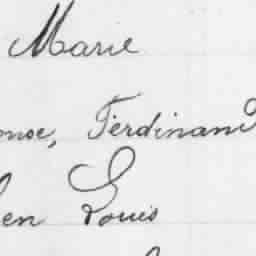 Marie
onse, Ferdinand
en Louis